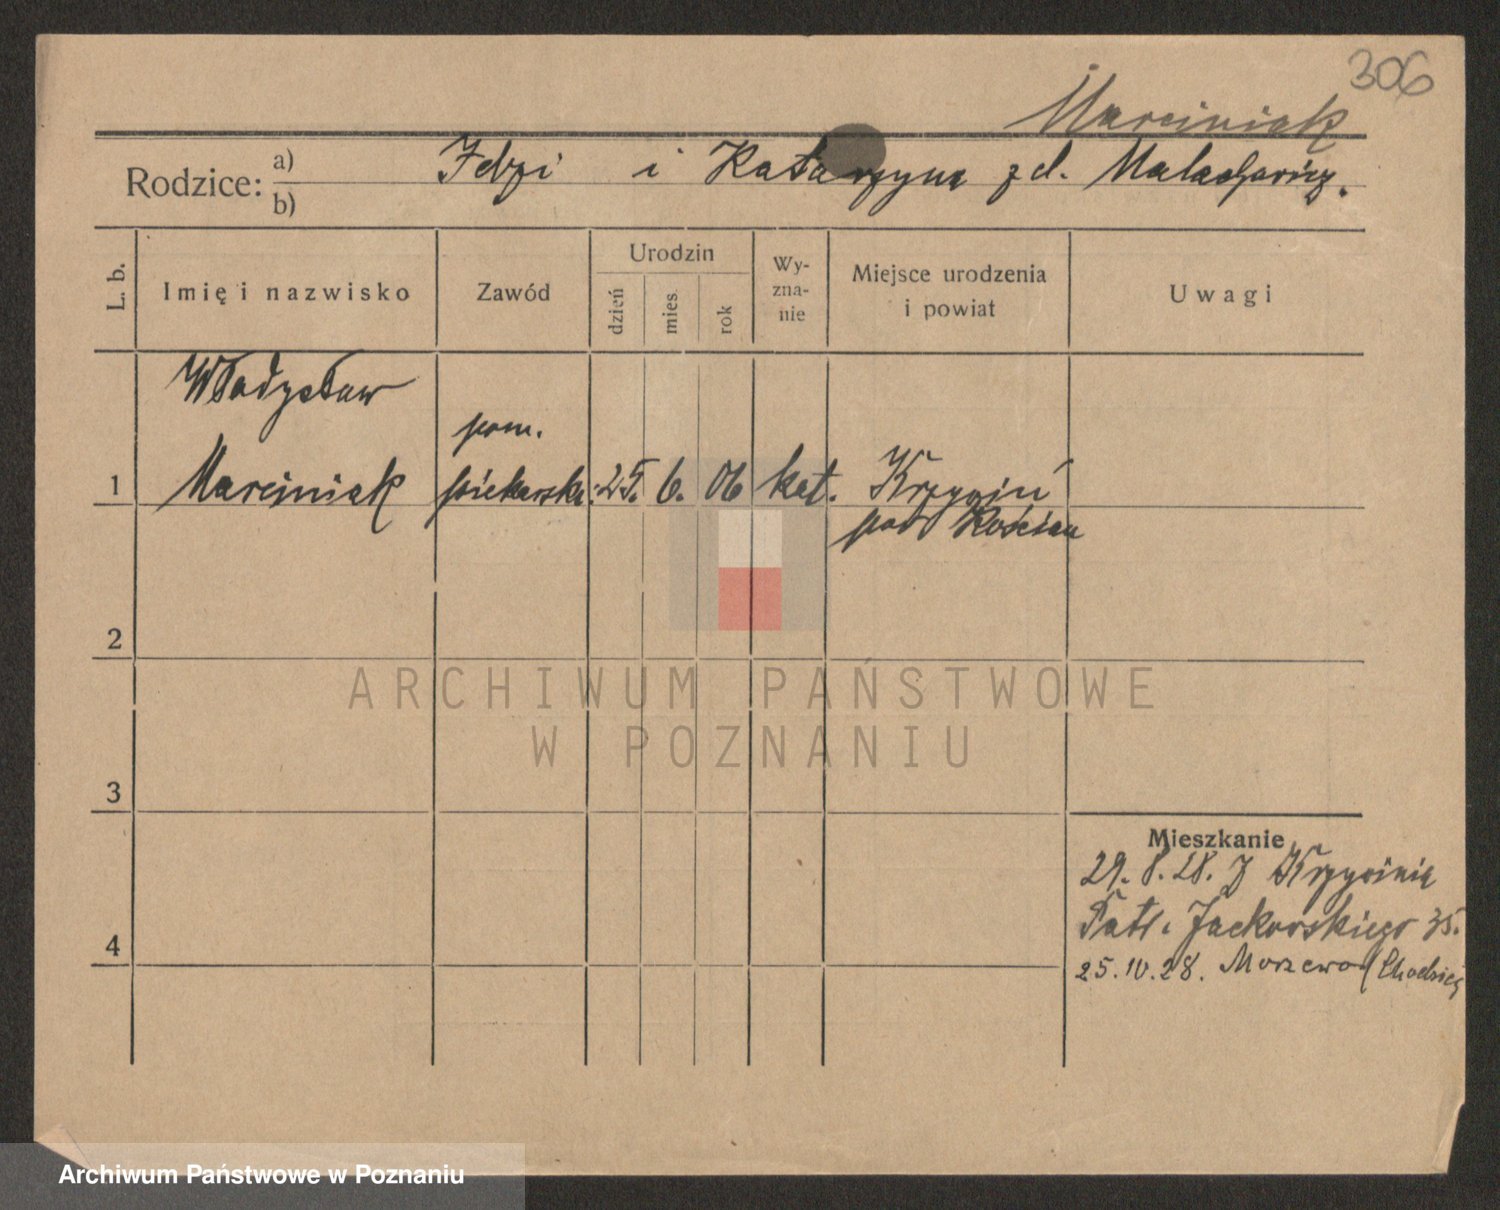 306
Marciniak
Rodzice: a) b)
i Katarzyna z d.
L. b.
Imię i nazwisko
Zawód
Urodzin
dzień
mies.
rok
Wy-
zna-
nie
Miejsce urodzenia
i powiat
Uwagi
Władysław
Marciniak
pom.
piekarski
25. 6. 06
kat.
Krzywiń
pow Kościan
1
2
3
4
ARCHIWUM PAŃSTWOWE
W POZNANIU
Mieszkanie
29. 8. 28. z Krzywinia
Jackowskiego 35.
25.10.28. Morzewo (Chodzież
Archiwum Państwowe w Poznaniu